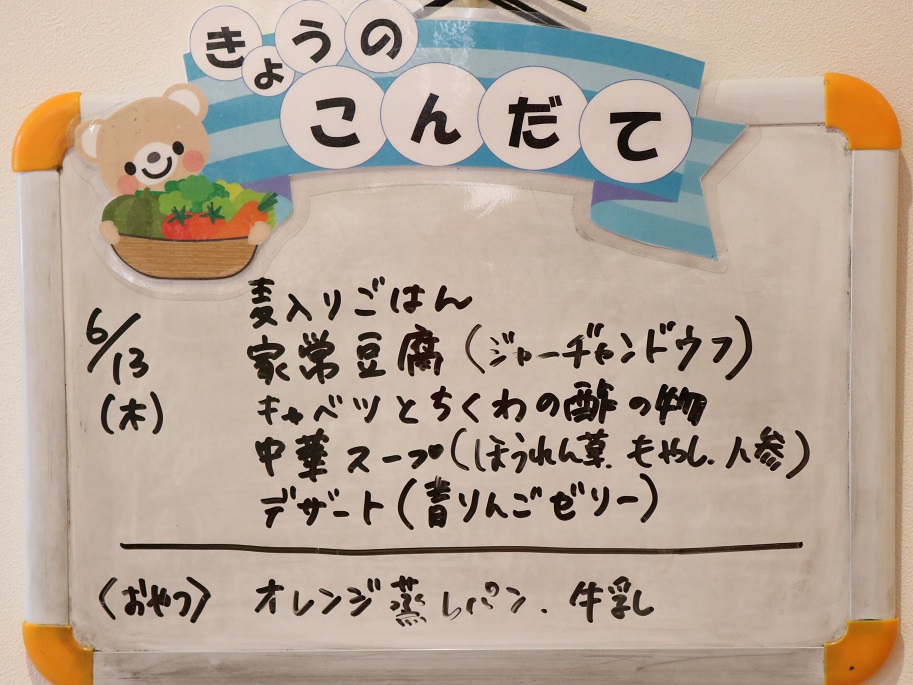 きょうの
こんだて
6/13
(木)
麦入りごはん
家常豆腐(ジャーヂャンドウフ)
キャベツとちくわの酢の物
中華スープ(ほうれん草.もやし.人参)
デザート(青りんごゼリー)
〈おやつ〉 オレンジ蒸しパン.牛乳